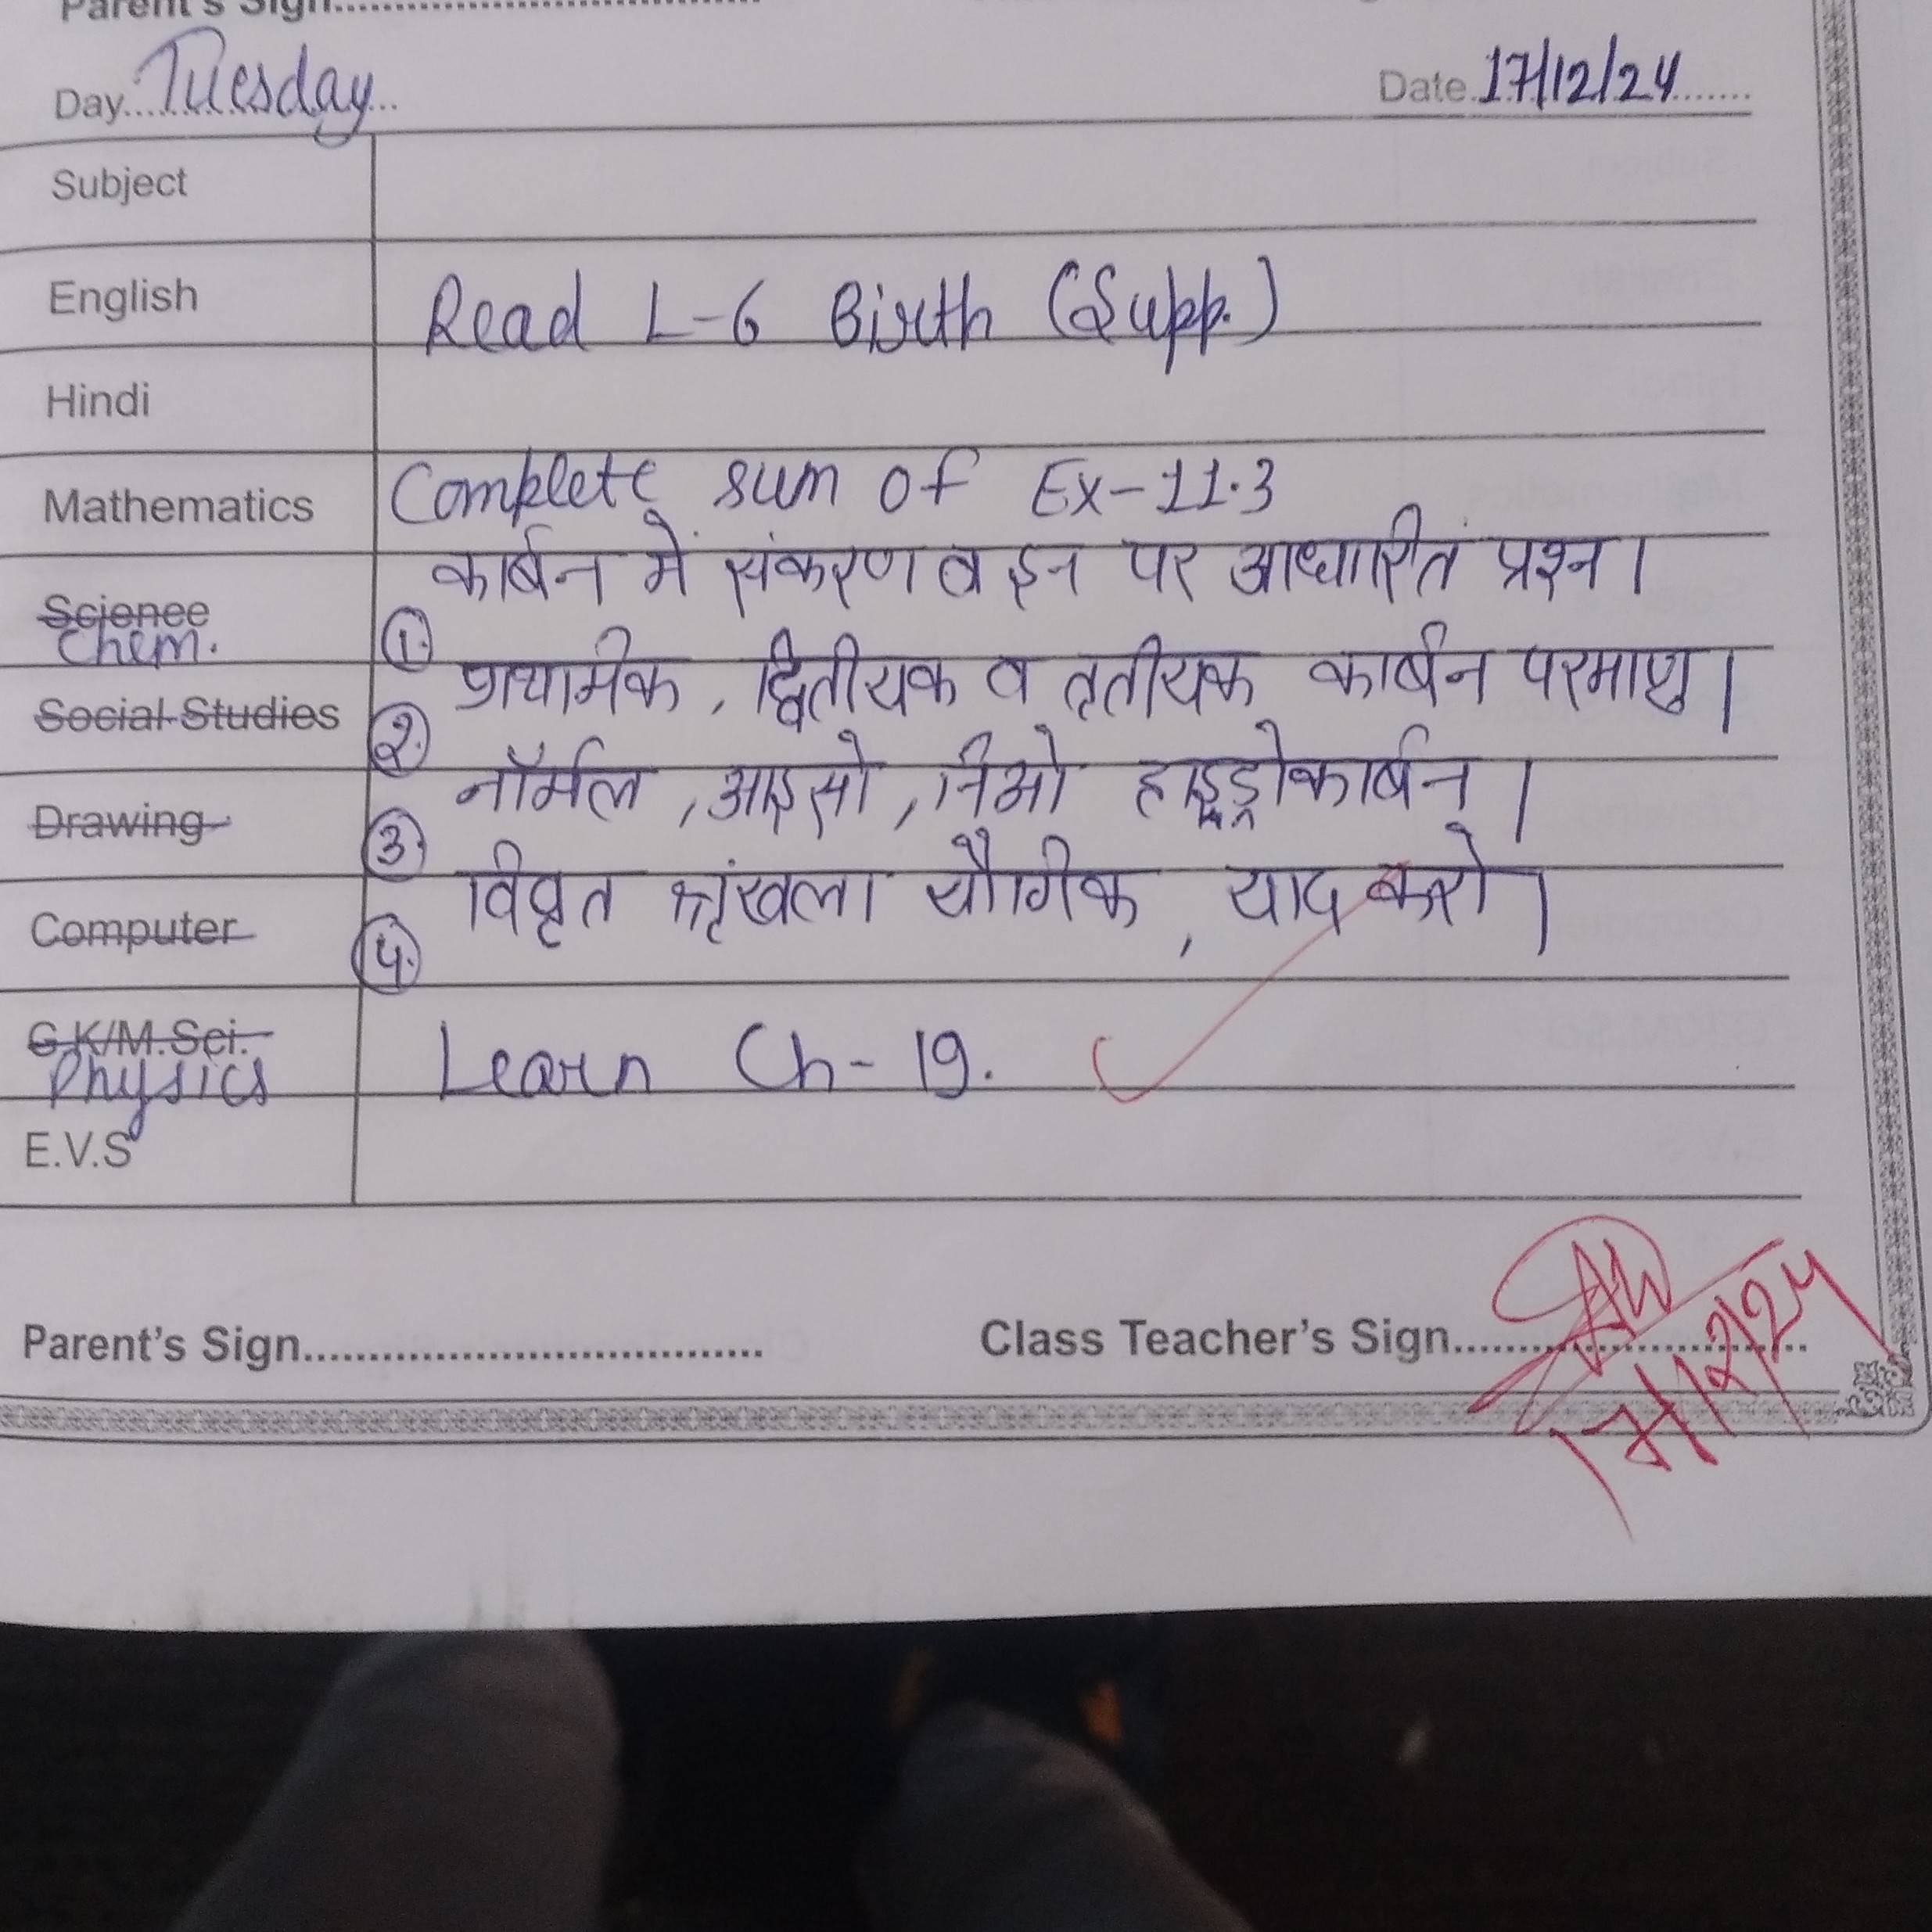 Parent's Sign
Day Tuesday Date 17/12/24
Subject
English Read L-6 Birth (Supp.)
Hindi
Mathematics Complete sum of Ex-11.3
Science Chem. ① कार्बन में संकरण व इन पर आधारित प्रश्न।
Social Studies ② प्राथमिक, द्वितीयक व तृतीयक कार्बन परमाणु।
Drawing ③ नॉर्मल, आइसो, निओ हाइड्रोकार्बन।
Computer ④ विवृत श्रृंखला यौगिक, याद करो।
G.K/M.Sci. Physics Learn Ch-19.
E.V.S
Parent's Sign Class Teacher's Sign
17/12/24